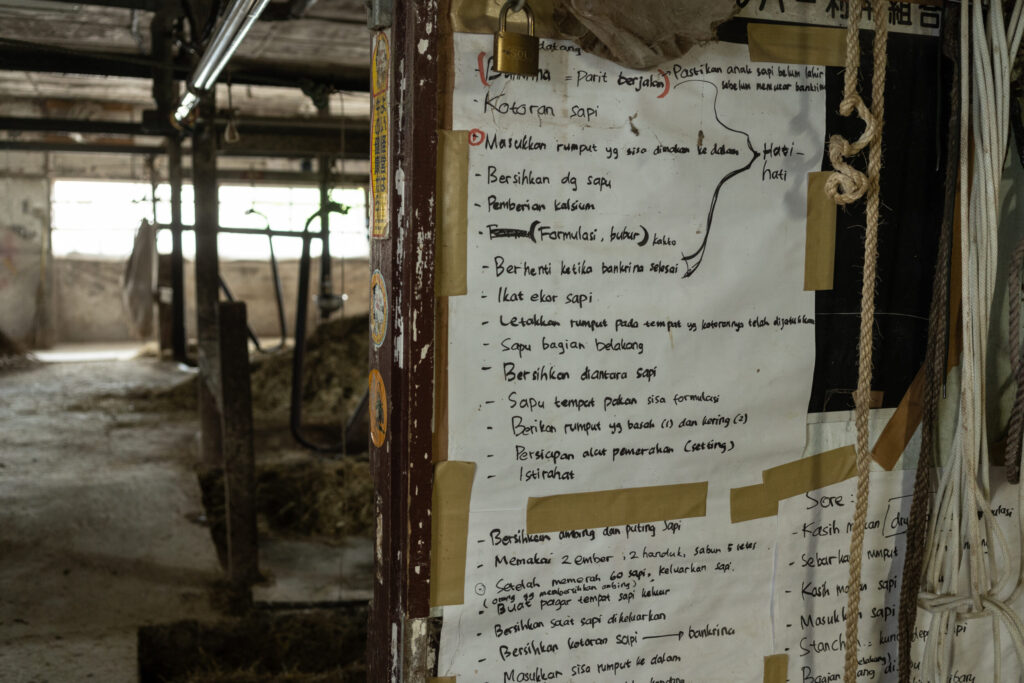 datang
- (Bankrina = Parit berjalan) Pastikan anak sapi belum lahir
sebelum memutar bankrina
- Kotoran sapi
- Masukkan rumput yg sisa dimakan ke dalam
Hati-
hati
- Bersihkan dg sapu
- Pemberian kalsium
- (Formulasi, bubur) kakto
- Berhenti ketika bankrina selesai
- Ikat ekor sapi
- Letakkan rumput pada tempat yg kotorannya telah dijatuhkan
- Sapu bagian belakang
- Bersihkan diantara sapi
- Sapu tempat pakan sisa formulasi
- Berikan rumput yg basah (1) dan kering (2)
- Persiapan alat pemerahan (setting)
- Istirahat
- Bersihkan ambing dan puting sapi
- Memakai 2 ember, 2 handuk, sabun 5 tetes
Setelah memerah 60 sapi, keluarkan sapi.
(orang yg membersihkan ambing)
- Buat pagar tempat sapi keluar
- Bersihkan saat sapi dikeluarkan
- Bersihkan kotoran sapi → bankrina
- Masukkan sisa rumput ke dalam
Sore :
- Kasih makan
- Sebarkan rumput
- Kasih makan sapi
- Masukkan sapi
Stanchion = kunci sapi
- Bagian
組合